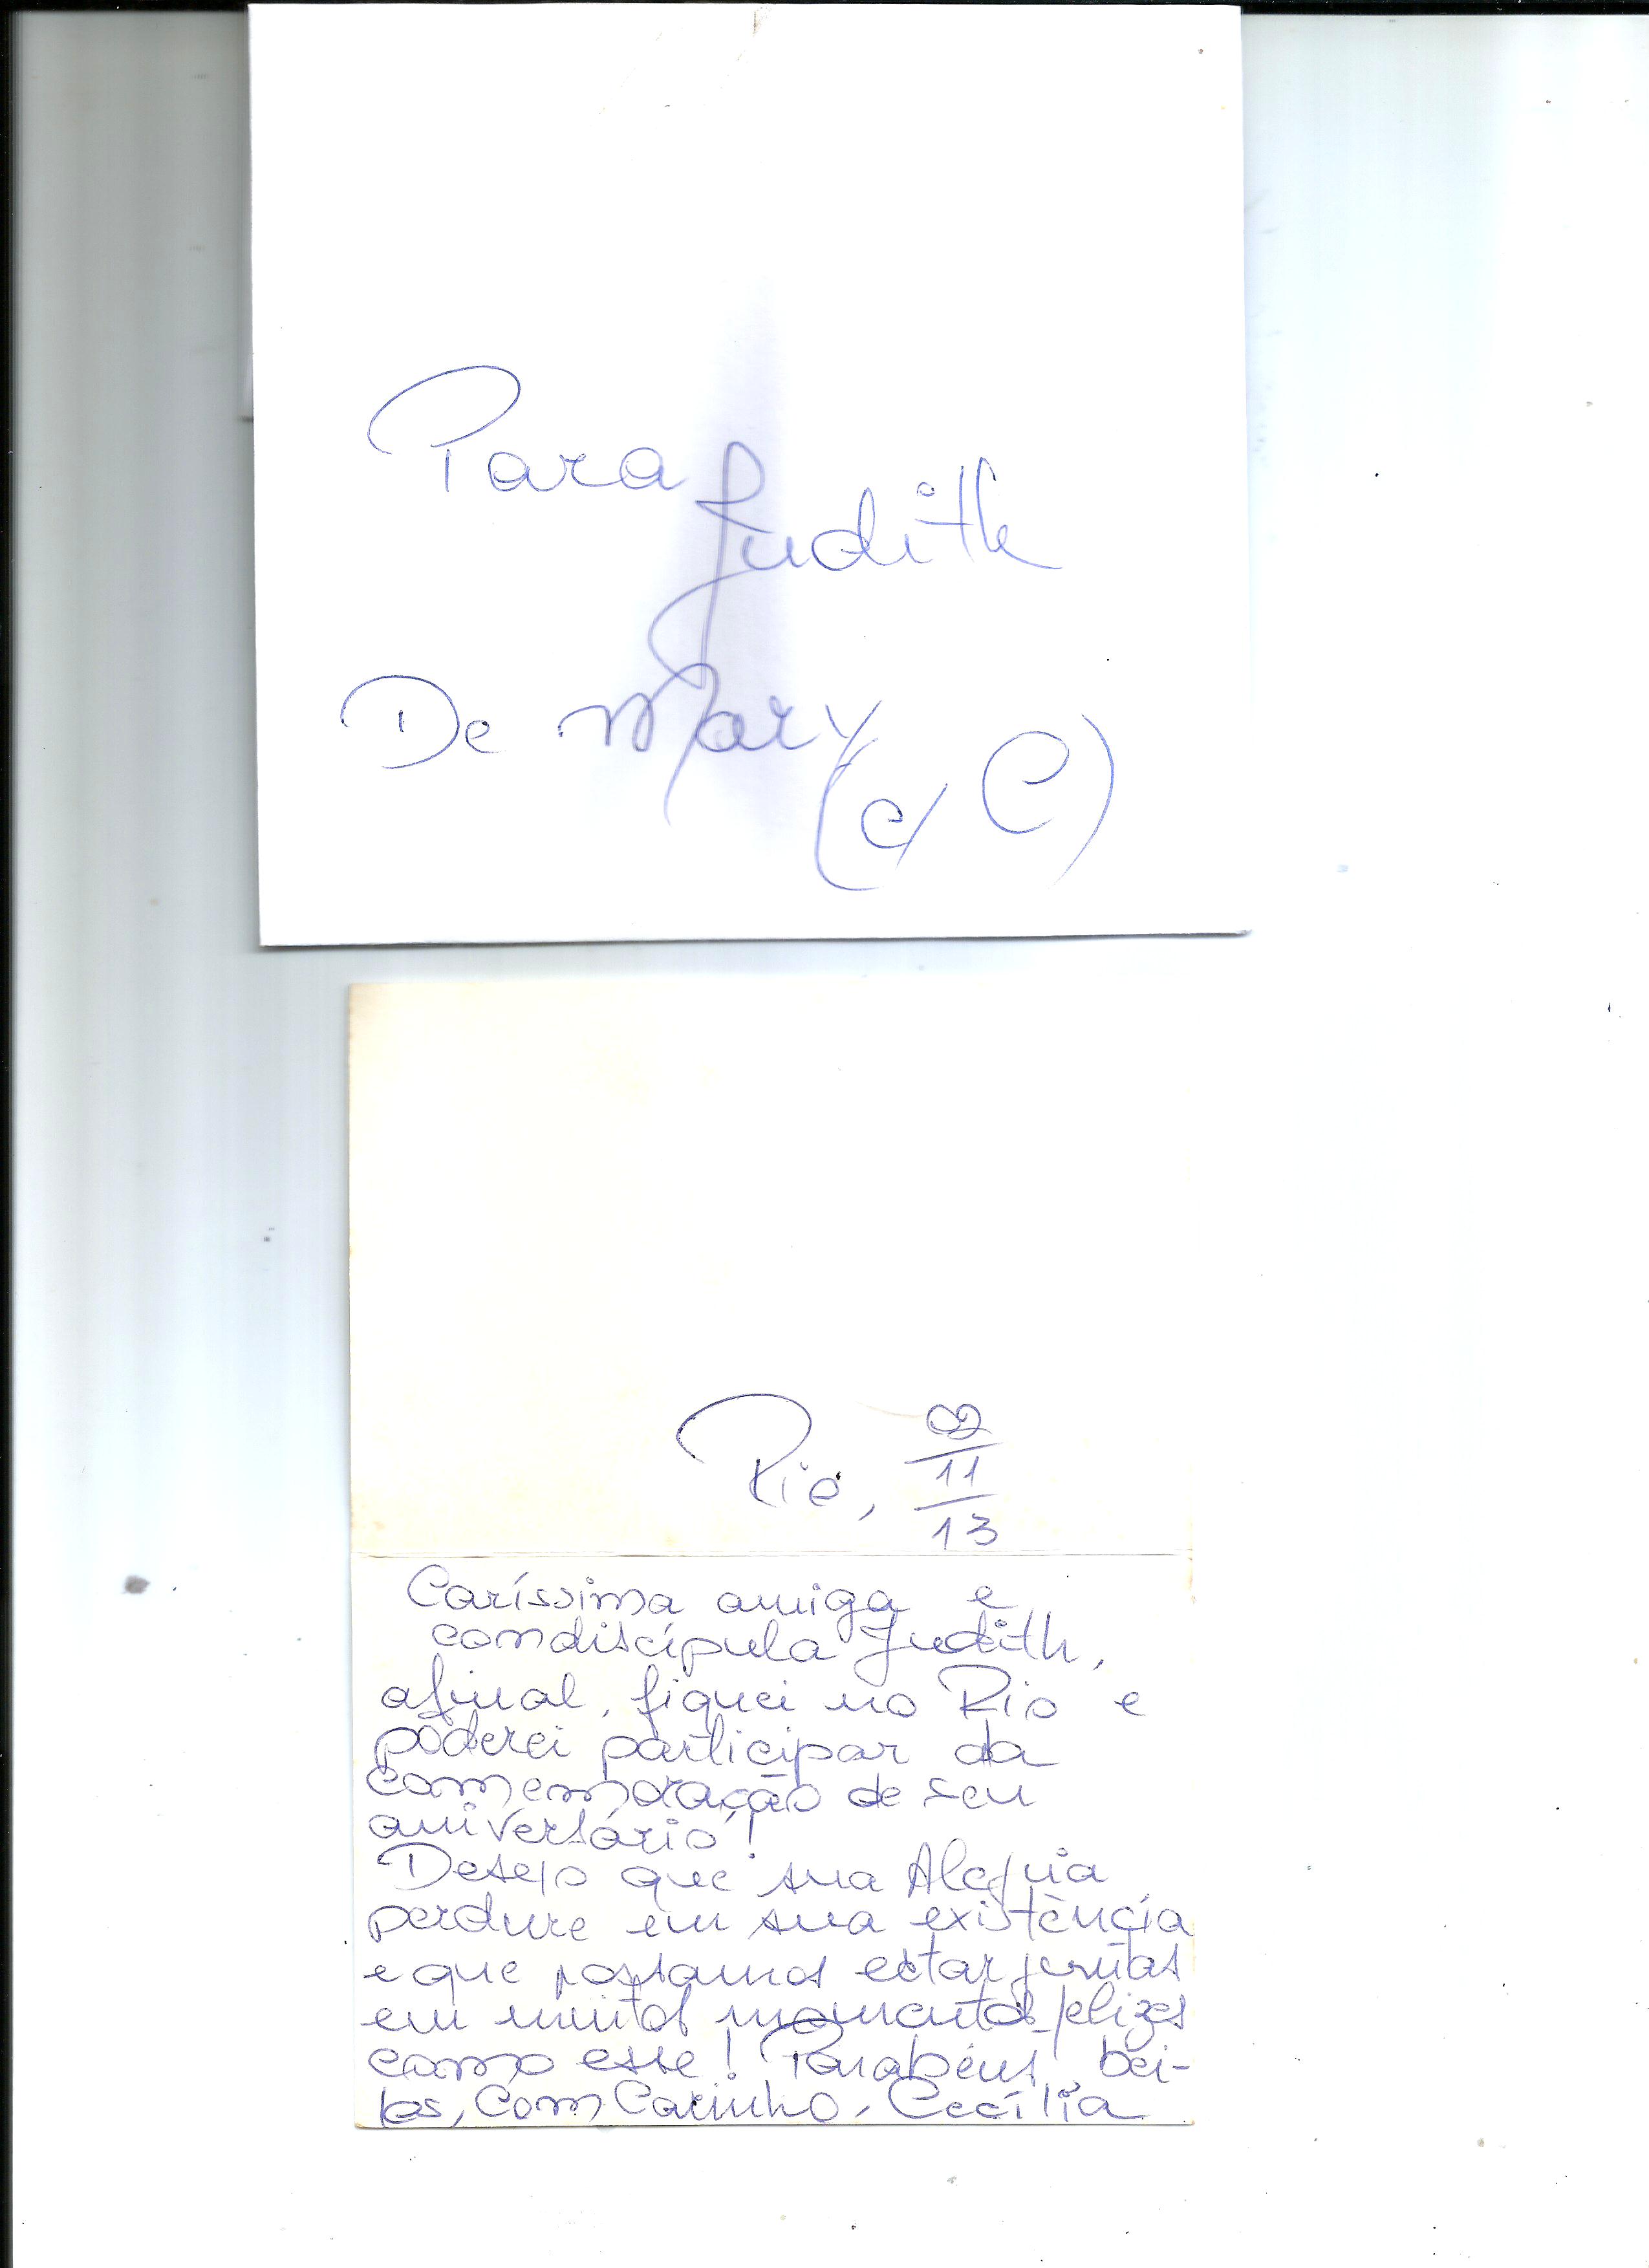 Para
Judith
De Mary
(c/ C)
Rio, 02
11
13
Caríssima amiga e
condiscípula Judith,
afinal, fiquei no Rio e
poderei participar da
comemoração de seu
aniversário!
Desejo que sua Alegria
perdure em sua existência
e que possamos estar juntas
em muitos momentos felizes
como esse! Parabéns, bei-
jos, Com Carinho, Cecília